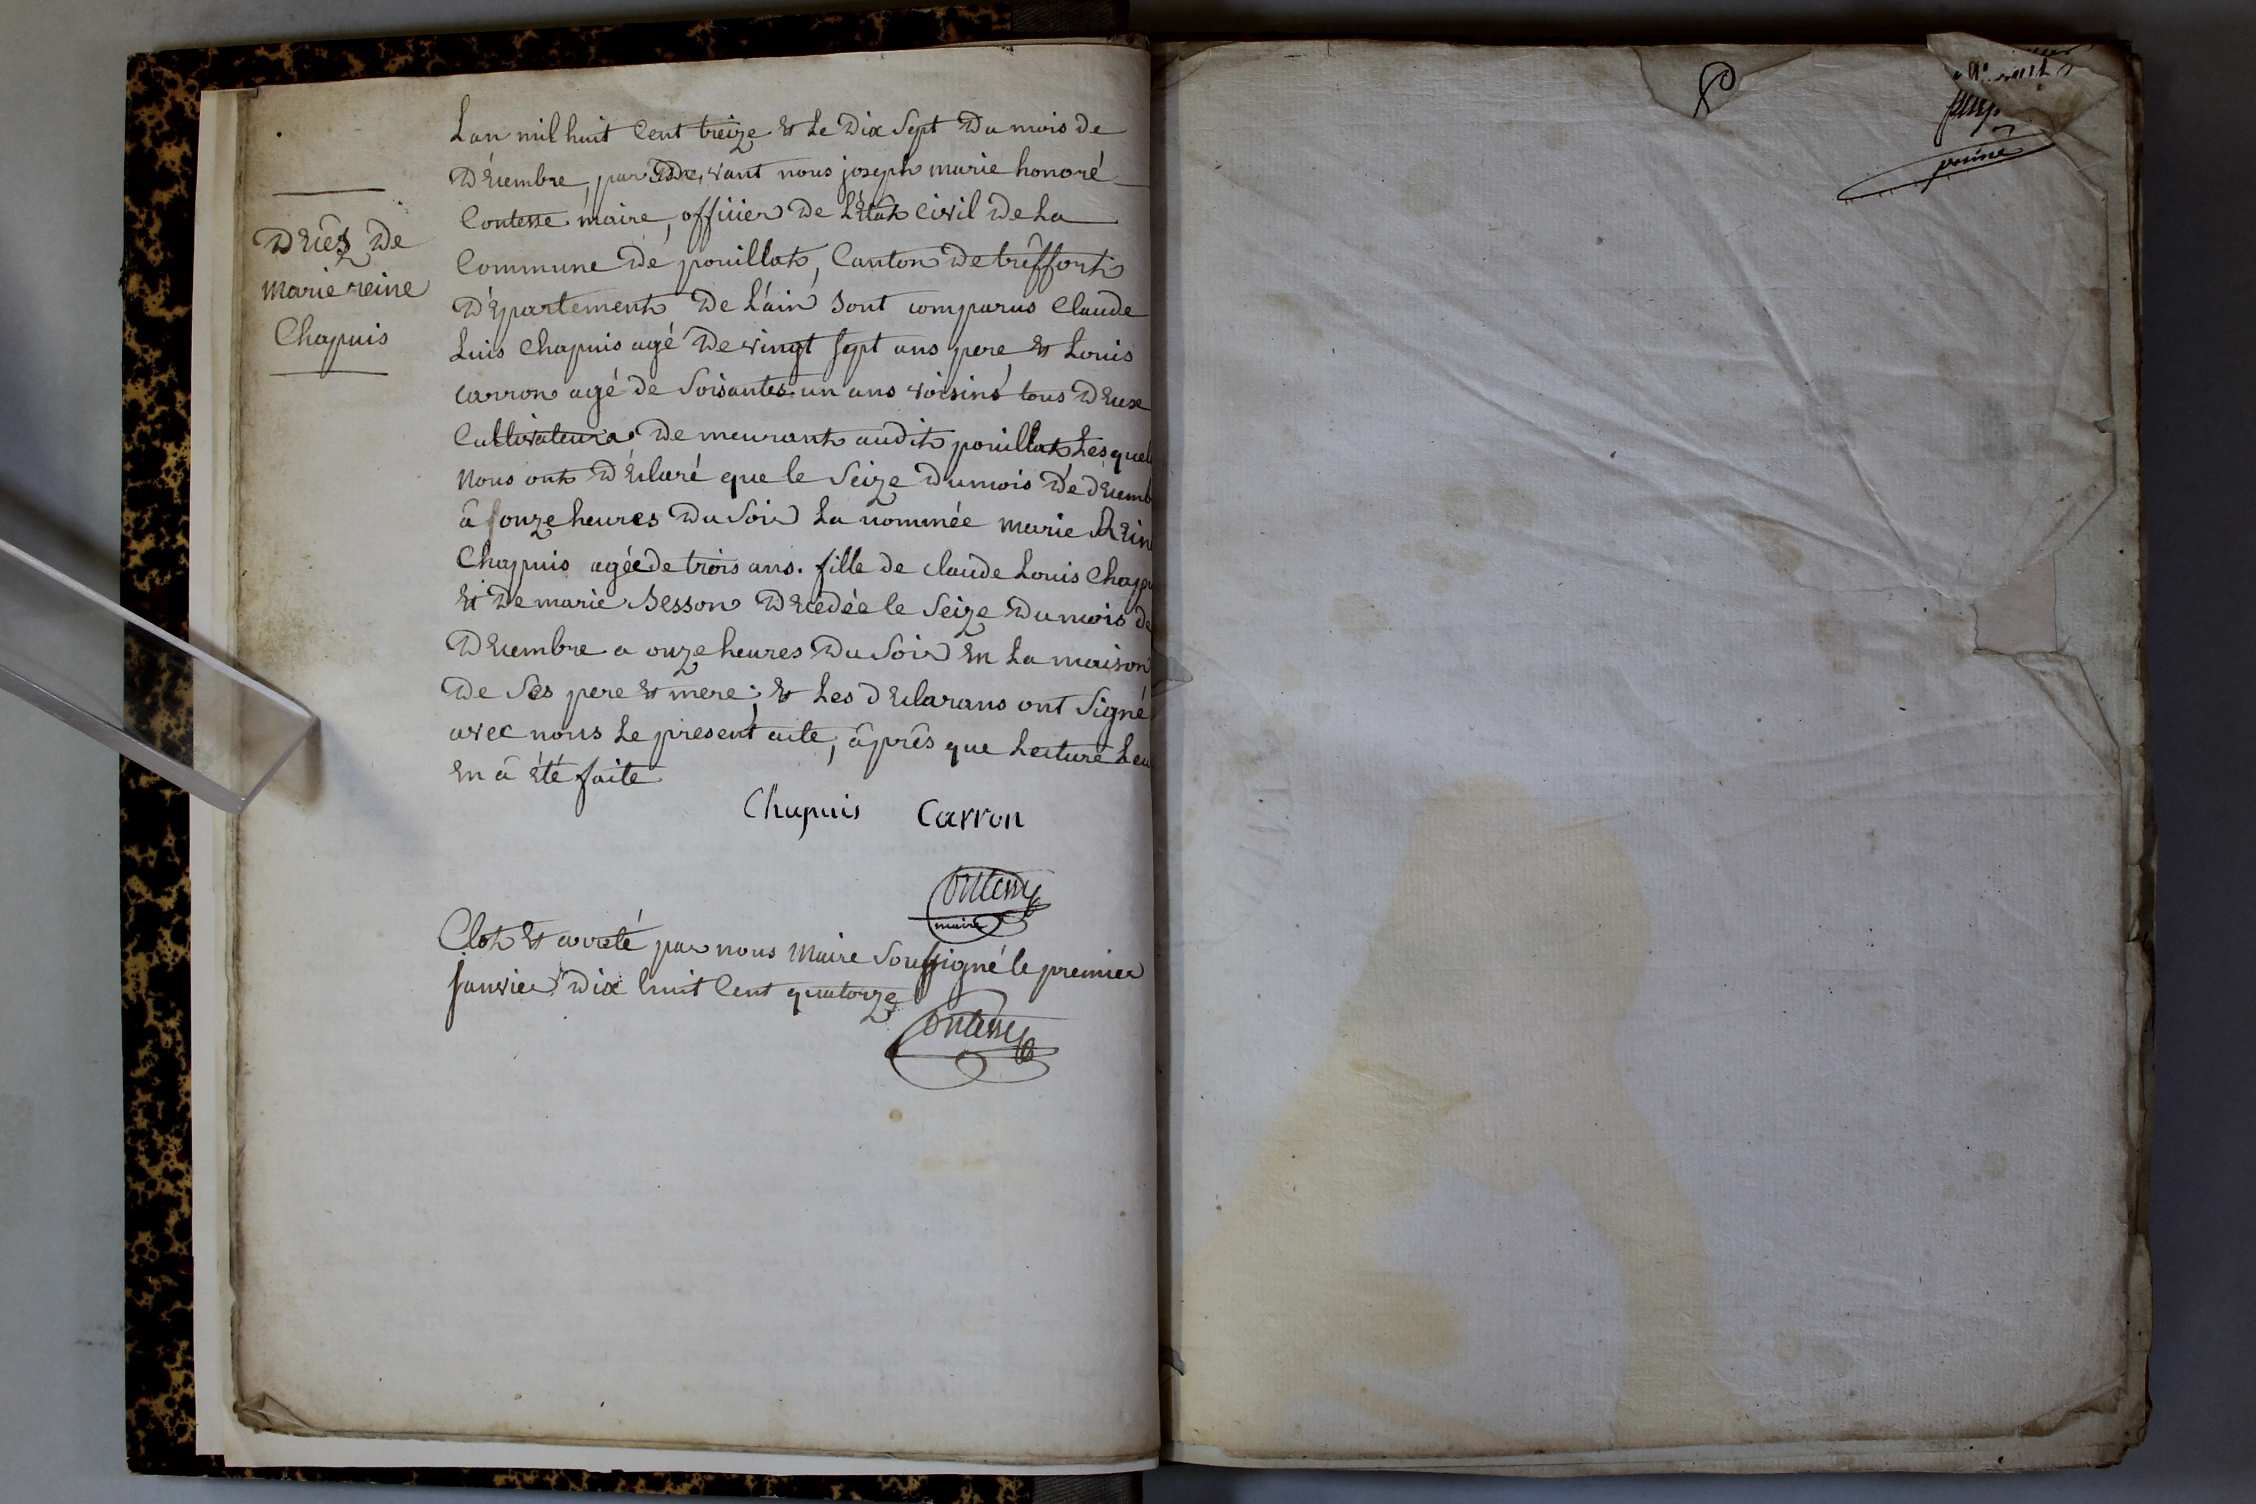 Décès de
marie reine
Chapuis
Lan mil huit Cent treize et Le Dix Sept Du mois de
Décembre, par De, vant nous joseph marie honoré
Contesse maire, officier De L'état Civil De La
Commune De pouillat, Canton De trêffort
Département De L'ain Sont comparus Claude
Luis Chapuis agé De vingt sept ans pere et Louis
carron agé de Soisantes un ans voisins tous Deux
Cultivateurs De meurant audit pouillat Lesquel
Nous ont Déclaré que le Seize Du mois De décemb
â onze heures Du Soir La nommée marie Rein
Chapuis agée de trois ans. fille de claude Louis Chapu
et De marie Besson Decedée le Seize Du mois de
Decembre a onze heures Du Soir En La maison
De Ses pere et mere; et Les déclarans ont Signé
avec nous Le present acte, âprês que Lecture Leu
En â été faite
Chapuis Carron
Contesse
maire
Clot et arreté par nous Maire Soussigné le premier
Janvier Dix huit Cent quatorze
Contesse